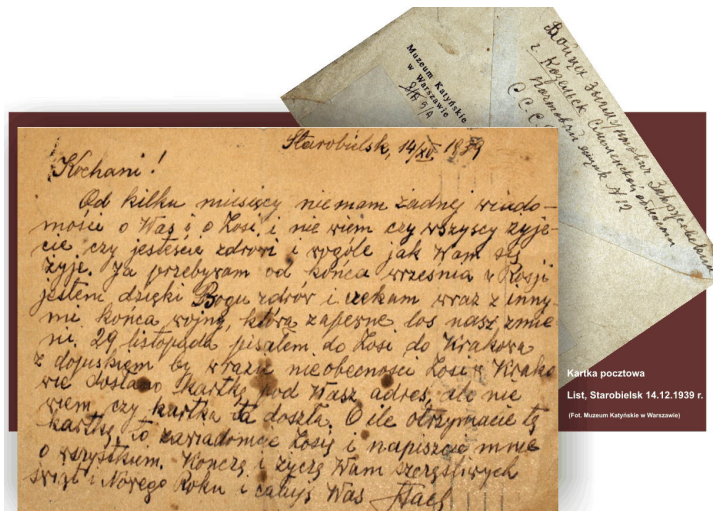 Starobielsk, 14/XII 1939
Kochani!
Od kilku miesięcy nie mam żadnej wiado-
mości o Was i o Zosi, i nie wiem czy wszyscy żyje-
cie czy jesteście zdrowi i wogóle jak Wam się
żyje. Ja przebywam od końca września w Rosji
jestem dzięki Bogu zdrów i czekam wraz z inny-
mi końca wojny, która zapewne los nasz zmie
ni. 29 listopada pisałem do Zosi do Krakowa
z dopiskiem by wrazie nieobecności Zosi w Krako
wie dostano kartkę pod Wasz adres, ale nie
wiem czy kartka ta doszła. O ile otrzymacie tę
kartkę to zawiadomcie Zosię i napiszcie mnie
o wszystkim. Kończę i życzę Wam szczęśliwych
świąt i Nowego Roku i całuję Was Stach
Muzeum Katyńskie
w Warszawie
Войцех Зыгмунтович
г. Козельск Смоленской области
почтовый ящик № 12
С.С.С.
Kartka pocztowa
List, Starobielsk 14.12.1939 r.
(Fot. Muzeum Katyńskie w Warszawie)